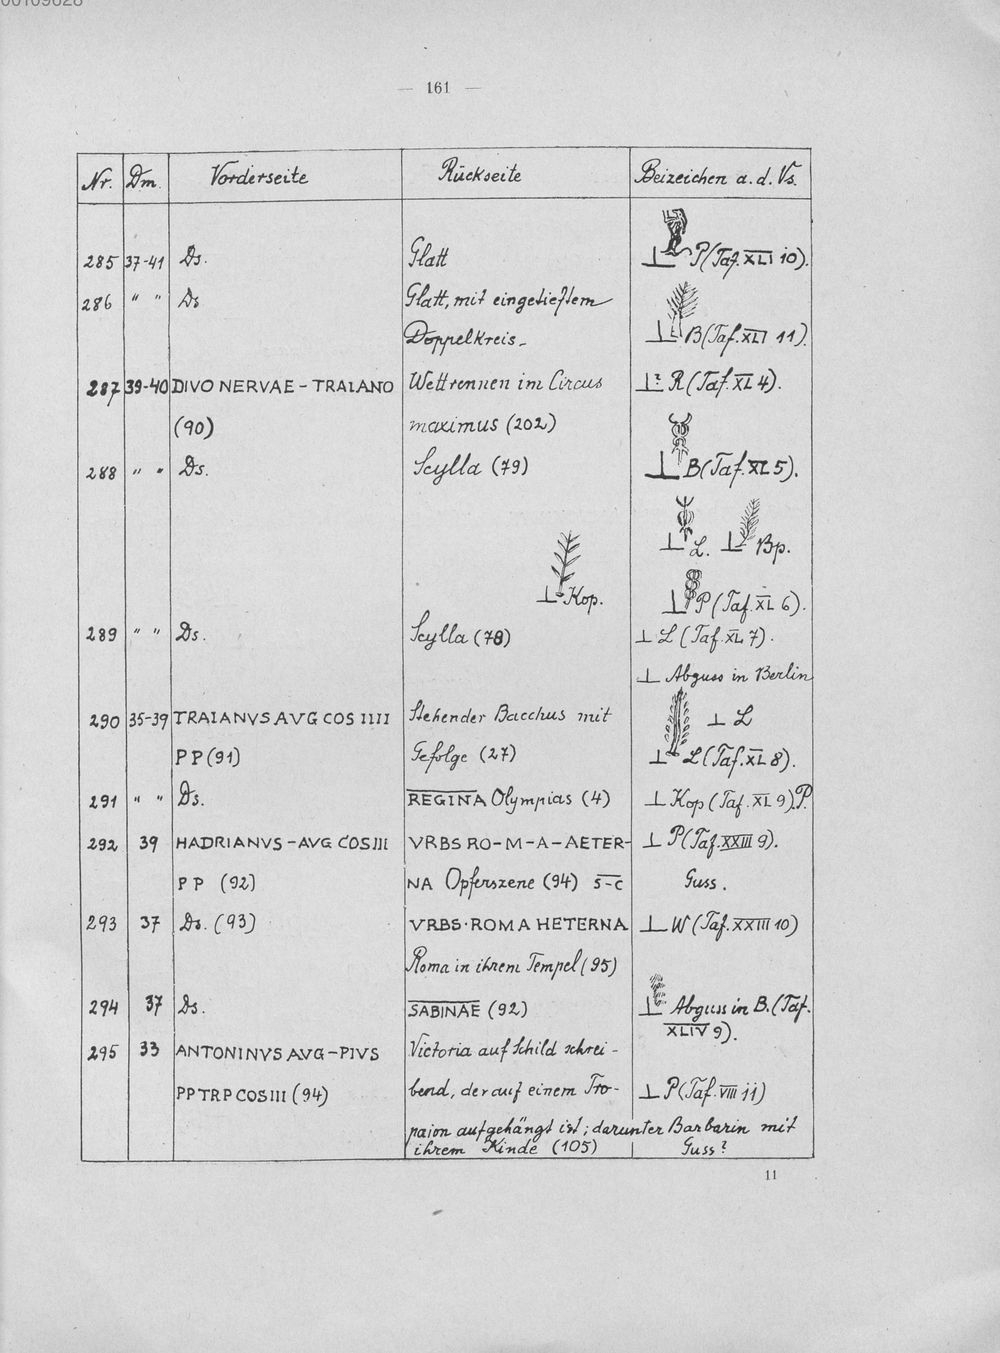 — 161 —
Nr. Dm. Vorderseite Rückseite Beizeichen a. d. Vs.
285 37-41 Ds. Glatt ⊥ P (Taf. XLI 10).
286 " " Ds Glatt, mit eingetieftem
Doppelkreis. ⊥ B (Taf. XLI 11).
287 39-40 DIVO NERVAE – TRAIANO Wettrennen im Circus ⊥? R (Taf. XL 4).
(90) maximus (202)
288 " " Ds. Scylla (79) ⊥ B (Taf. XL 5).
⊥ L. ⊥ Bp.
⊥ Kop. ⊥ P (Taf. XL 6).
289 " " Ds. Scylla (78) ⊥ L (Taf. XL 7).
⊥ Abguss in Berlin
290 35-39 TRAIANVS AVG COS IIII Stehender Bacchus mit ⊥ L
PP (91) Gefolge (27) ⊥ L (Taf. XL 8).
291 " " Ds. REGINA Olympias (4) ⊥ Kop (Taf. XL 9). P.
292 39 HADRIANVS – AVG COS III VRBS RO-M-A-AETER- ⊥ P (Taf. XXIII 9).
PP (92) NA Opferszene (94) S-C Guss.
293 37 Ds. (93) VRBS·ROMA HETERNA ⊥ W (Taf. XXIII 10)
Roma in ihrem Tempel (95)
294 37 Ds. SABINAE (92) ⊥ Abguss in B. (Taf.
XLIV 9).
295 33 ANTONINVS AVG-PIVS Victoria auf Schild schrei-
PP TRP COS III (94) bend, der auf einem Tro- ⊥ P (Taf. VIII 11)
paion aufgehängt ist; darunter Barbarin mit
ihrem Kinde (105) Guss?
11